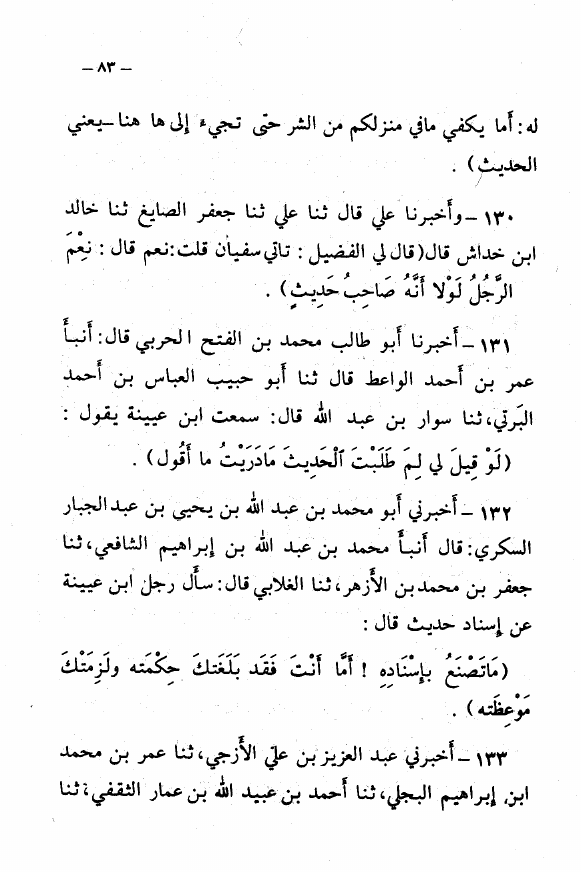 – ٨٣ –
له: أما يكفي مافي منزلكم من الشر حتى تجيء إلى ها هنا – يعني
الحديث) .
١٣٠ – وأخبرنا علي قال ثنا علي ثنا جعفر الصايغ ثنا خالد
ابن خداش قال (قال لي الفضيل : تاتي سفيان قلت: نعم قال : نِعْمَ
الرَّجُلُ لَوْلا أَنَّهُ صَاحِبُ حَدِيثٍ) .
١٣١ – أخبرنا أبو طالب محمد بن الفتح الحربي قال: أنبأ
عمر بن أحمد الواعظ قال ثنا أبو حبيب العباس بن أحمد
البَرتي، ثنا سوار بن عبد الله قال: سمعت ابن عيينة يقول :
(لَوْ قِيلَ لي لِمَ طَلَبْتَ اَلْحَدِيثَ مَادَرَيْتُ ما أَقُول) .
١٣٢ – أخبرني أبو محمد بن عبد الله بن يحيى بن عبد الجبار
السكري: قال أنبأ محمد بن عبد الله بن إبراهيم الشافعي، ثنا
جعفر بن محمد بن الأزهر، ثنا الغلابي قال: سأل رجل ابن عيينة
عن إسناد حديث قال :
(مَاتَصْنَعُ بإسْنَادِهِ ! أَمَّا أَنْتَ فَقَد بَلَغَتكَ حِكْمَته ولَزِمَتْكَ
مَوْعِظَته) .
١٣٣ – أخبرني عبد العزيز بن عليّ الأزجي، ثنا عمر بن محمد
ابن إبراهيم البجلي، ثنا أحمد بن عبيد الله بن عمار الثقفي، ثنا